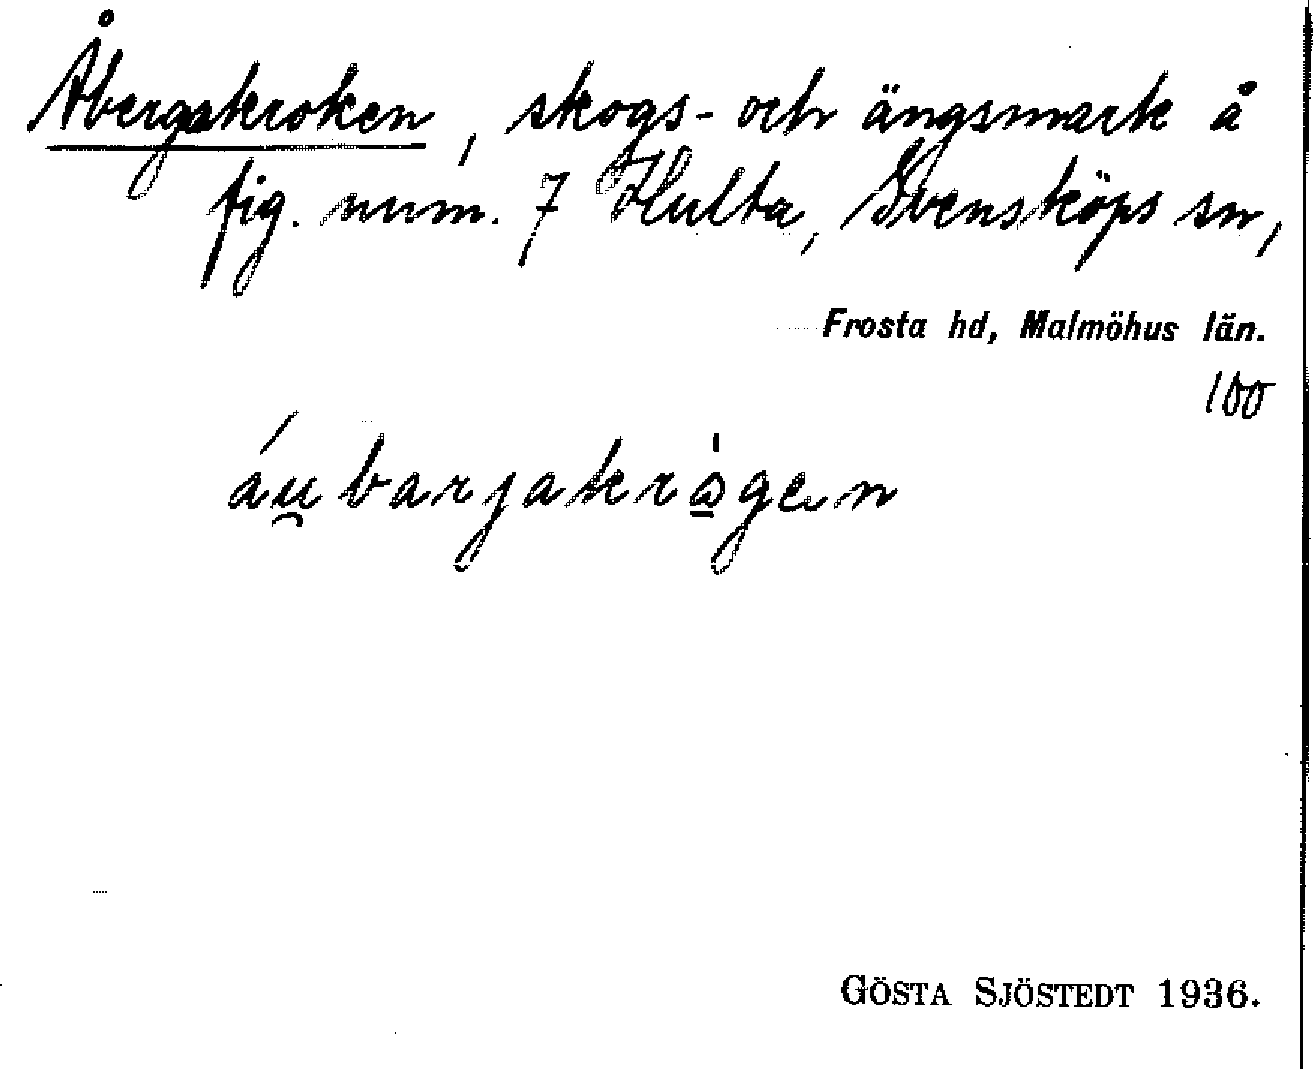 Åbergakroken, skogs- och ängsmark å
fig. num. 7 Hulta, Svensköps sn,
Frosta hd, Malmöhus län.
100
áu̯barjakrå̲̍gen
GÖSTA SJÖSTEDT 1936.